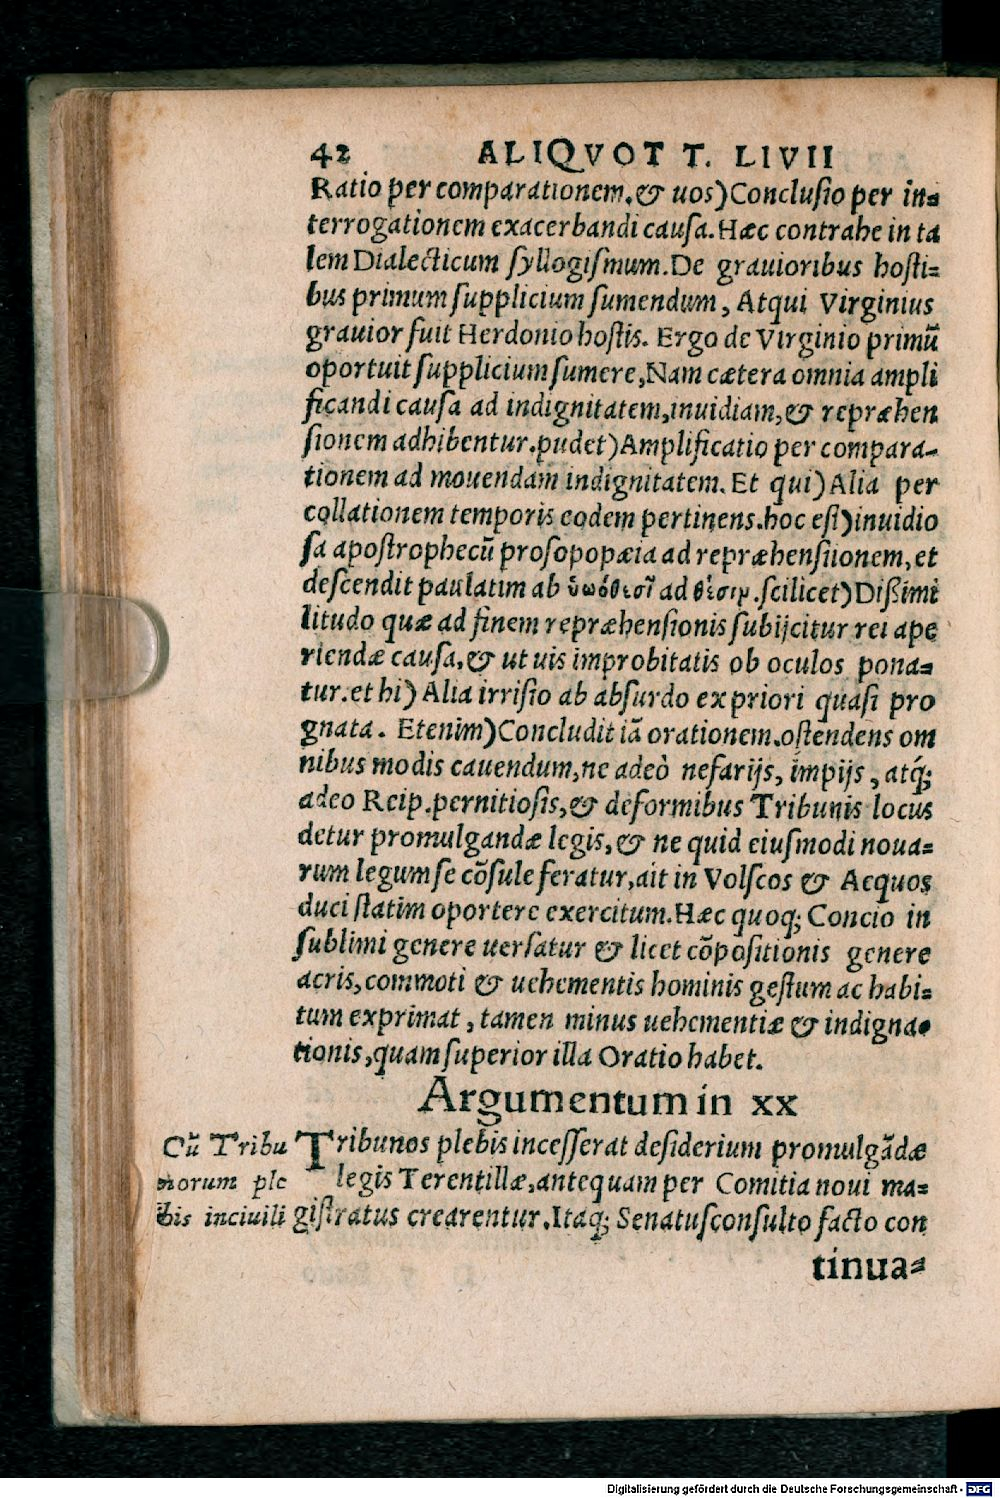 42 ALIQVOT T. LIVII
Ratio per comparationem.& uos) Conclusio per in=
terrogationem exacerbandi causa. Hæc contrahe in ta
lem Dialecticum syllogismum. De grauioribus hosti=
bus primum supplicium sumendum, Atqui Virginius
grauior fuit Herdonio hostis. Ergo de Virginio primũ
oportuit supplicium sumere, Nam cætera omnia ampli
ficandi causa ad indignitatem, inuidiam, & repræhen
sionem adhibentur. pudet) Amplificatio per compara-
tionem ad mouendam indignitatem. Et qui) Alia per
collationem temporis eodem pertinens. hoc est) inuidio
sa apostrophe cũ prosopopæia ad repræhensiionem, et
descendit paulatim ab ad θέσιν. scilicet) Dißimi
litudo quæ ad finem repræhensionis subijcitur rei ape
riendæ causa, & ut uis improbitatis ob oculos pona=
tur. et hi) Alia irrisio ab absurdo ex priori quasi pro
gnata. Etenim) Concludit iã orationem. ostendens om
nibus modis cauendum, ne adeò nefarijs, impijs, atq́;
adeo Reip. pernitiosis, & deformibus Tribunis locus
detur promulgandæ legis, & ne quid eiusmodi noua=
rum legum se cõsule feratur, ait in Volscos & Aequos
duci statim oportere exercitum. Hæc quoq; Concio in
sublimi genere uersatur & licet cõpositionis genere
acris, commoti & uehementis hominis gestum ac habi=
tum exprimat, tamen minus uehementiæ & indigna=
tionis, quam superior illa Oratio habet.
Argumentum in xx
Cũ Tribu
norum ple
bis inciuili
Tribunos plebis incesserat desiderium promulgãdæ
legis Terentillæ, antequam per Comitia noui ma=
gistratus crearentur. Itaq; Senatusconsulto facto con
tinua=
Digitalisierung gefördert durch die Deutsche Forschungsgemeinschaft - DFG